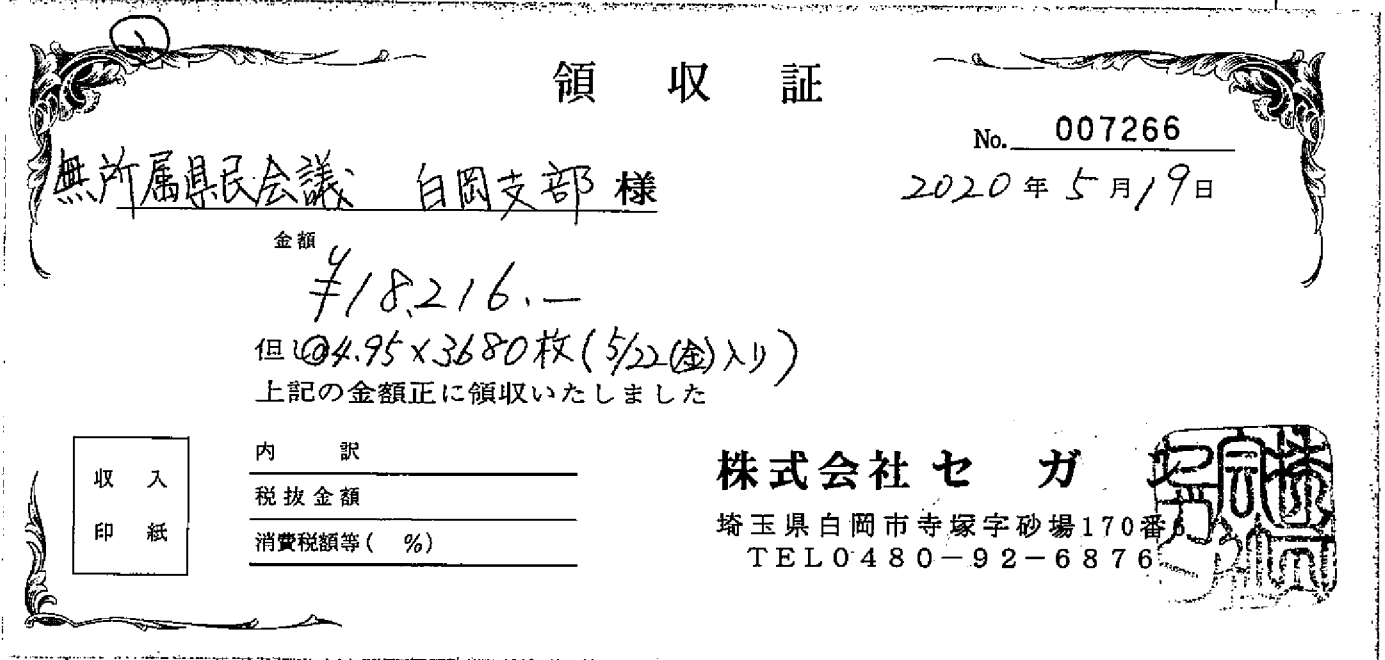 ①
領収証
No. 007266
無所属県民会議 白岡支部 様
2020年5月19日
金額
¥18,216.—
但し@4.95×3680枚(5/22(金)入り)
上記の金額正に領収いたしました
収入
印紙
内訳
税抜金額
消費税額等( %)
株式会社セガ
埼玉県白岡市寺塚字砂場170番6
TEL0480-92-6876